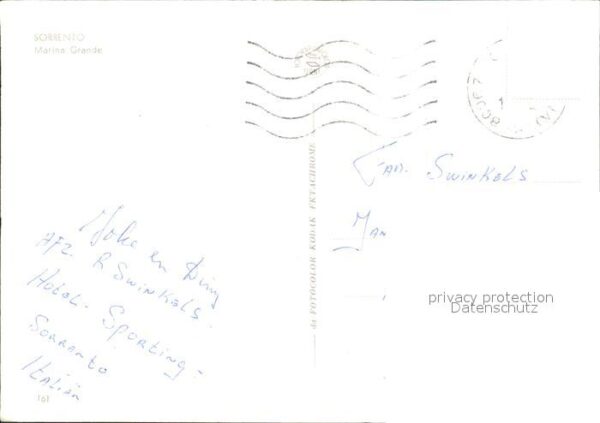 SORRENTO
Marina Grande
da FOTOCOLOR KODAK EKTACHROME
Fam. Swinkels
Joke en
Afz. R Swinkels.
Hotel. Sporting -
Sorranto
Italiän
161
privacy protection
Datenschutz